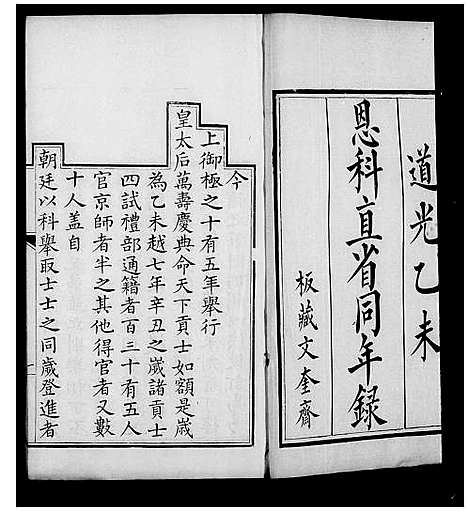 道光乙未
恩科直省同年録
板藏文奎齋
今
上御極之十有五年舉行
皇太后萬壽慶典命天下貢士如額是歲
為乙未越七年辛丑之歲諸貢士
四試禮部通籍者百三十有五人
官京師者半之其他得官者又數
十人蓋自
朝廷以科舉取士士之同歲登進者